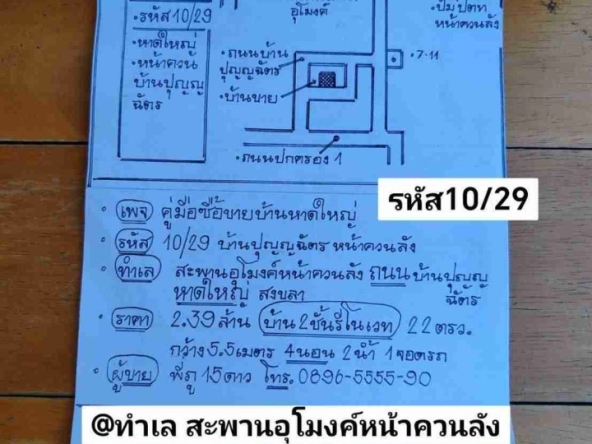 อุโมงค์
• ปั๊ม ปตท
หน้าควนลัง
• รหัส 10/29
• หาดใหญ่
• หน้าควนลัง
บ้านปุญญฉัตร
• ถนนบ้าน
ปุญญฉัตร
• บ้านขาย
• 7-11
• ถนนปกครอง 1
รหัส10/29
• เพจ คู่มือซื้อขายบ้านหาดใหญ่
• รหัส 10/29 บ้านปุญญฉัตร หน้าควนลัง
• ทำเล สะพานอุโมงค์หน้าควนลัง ถนนบ้านปุญญฉัตร
หาดใหญ่ สงขลา
• ราคา 2.39 ล้าน บ้าน 2 ชั้นรีโนเวท 22 ตรว.
กว้าง 5.5 เมตร 4 นอน 2 น้ำ 1 จอดรถ
• ผู้ขาย พี่ภู 15 ดาว โทร. 0896-5555-90
@ทำเล สะพานอุโมงค์หน้าควนลัง